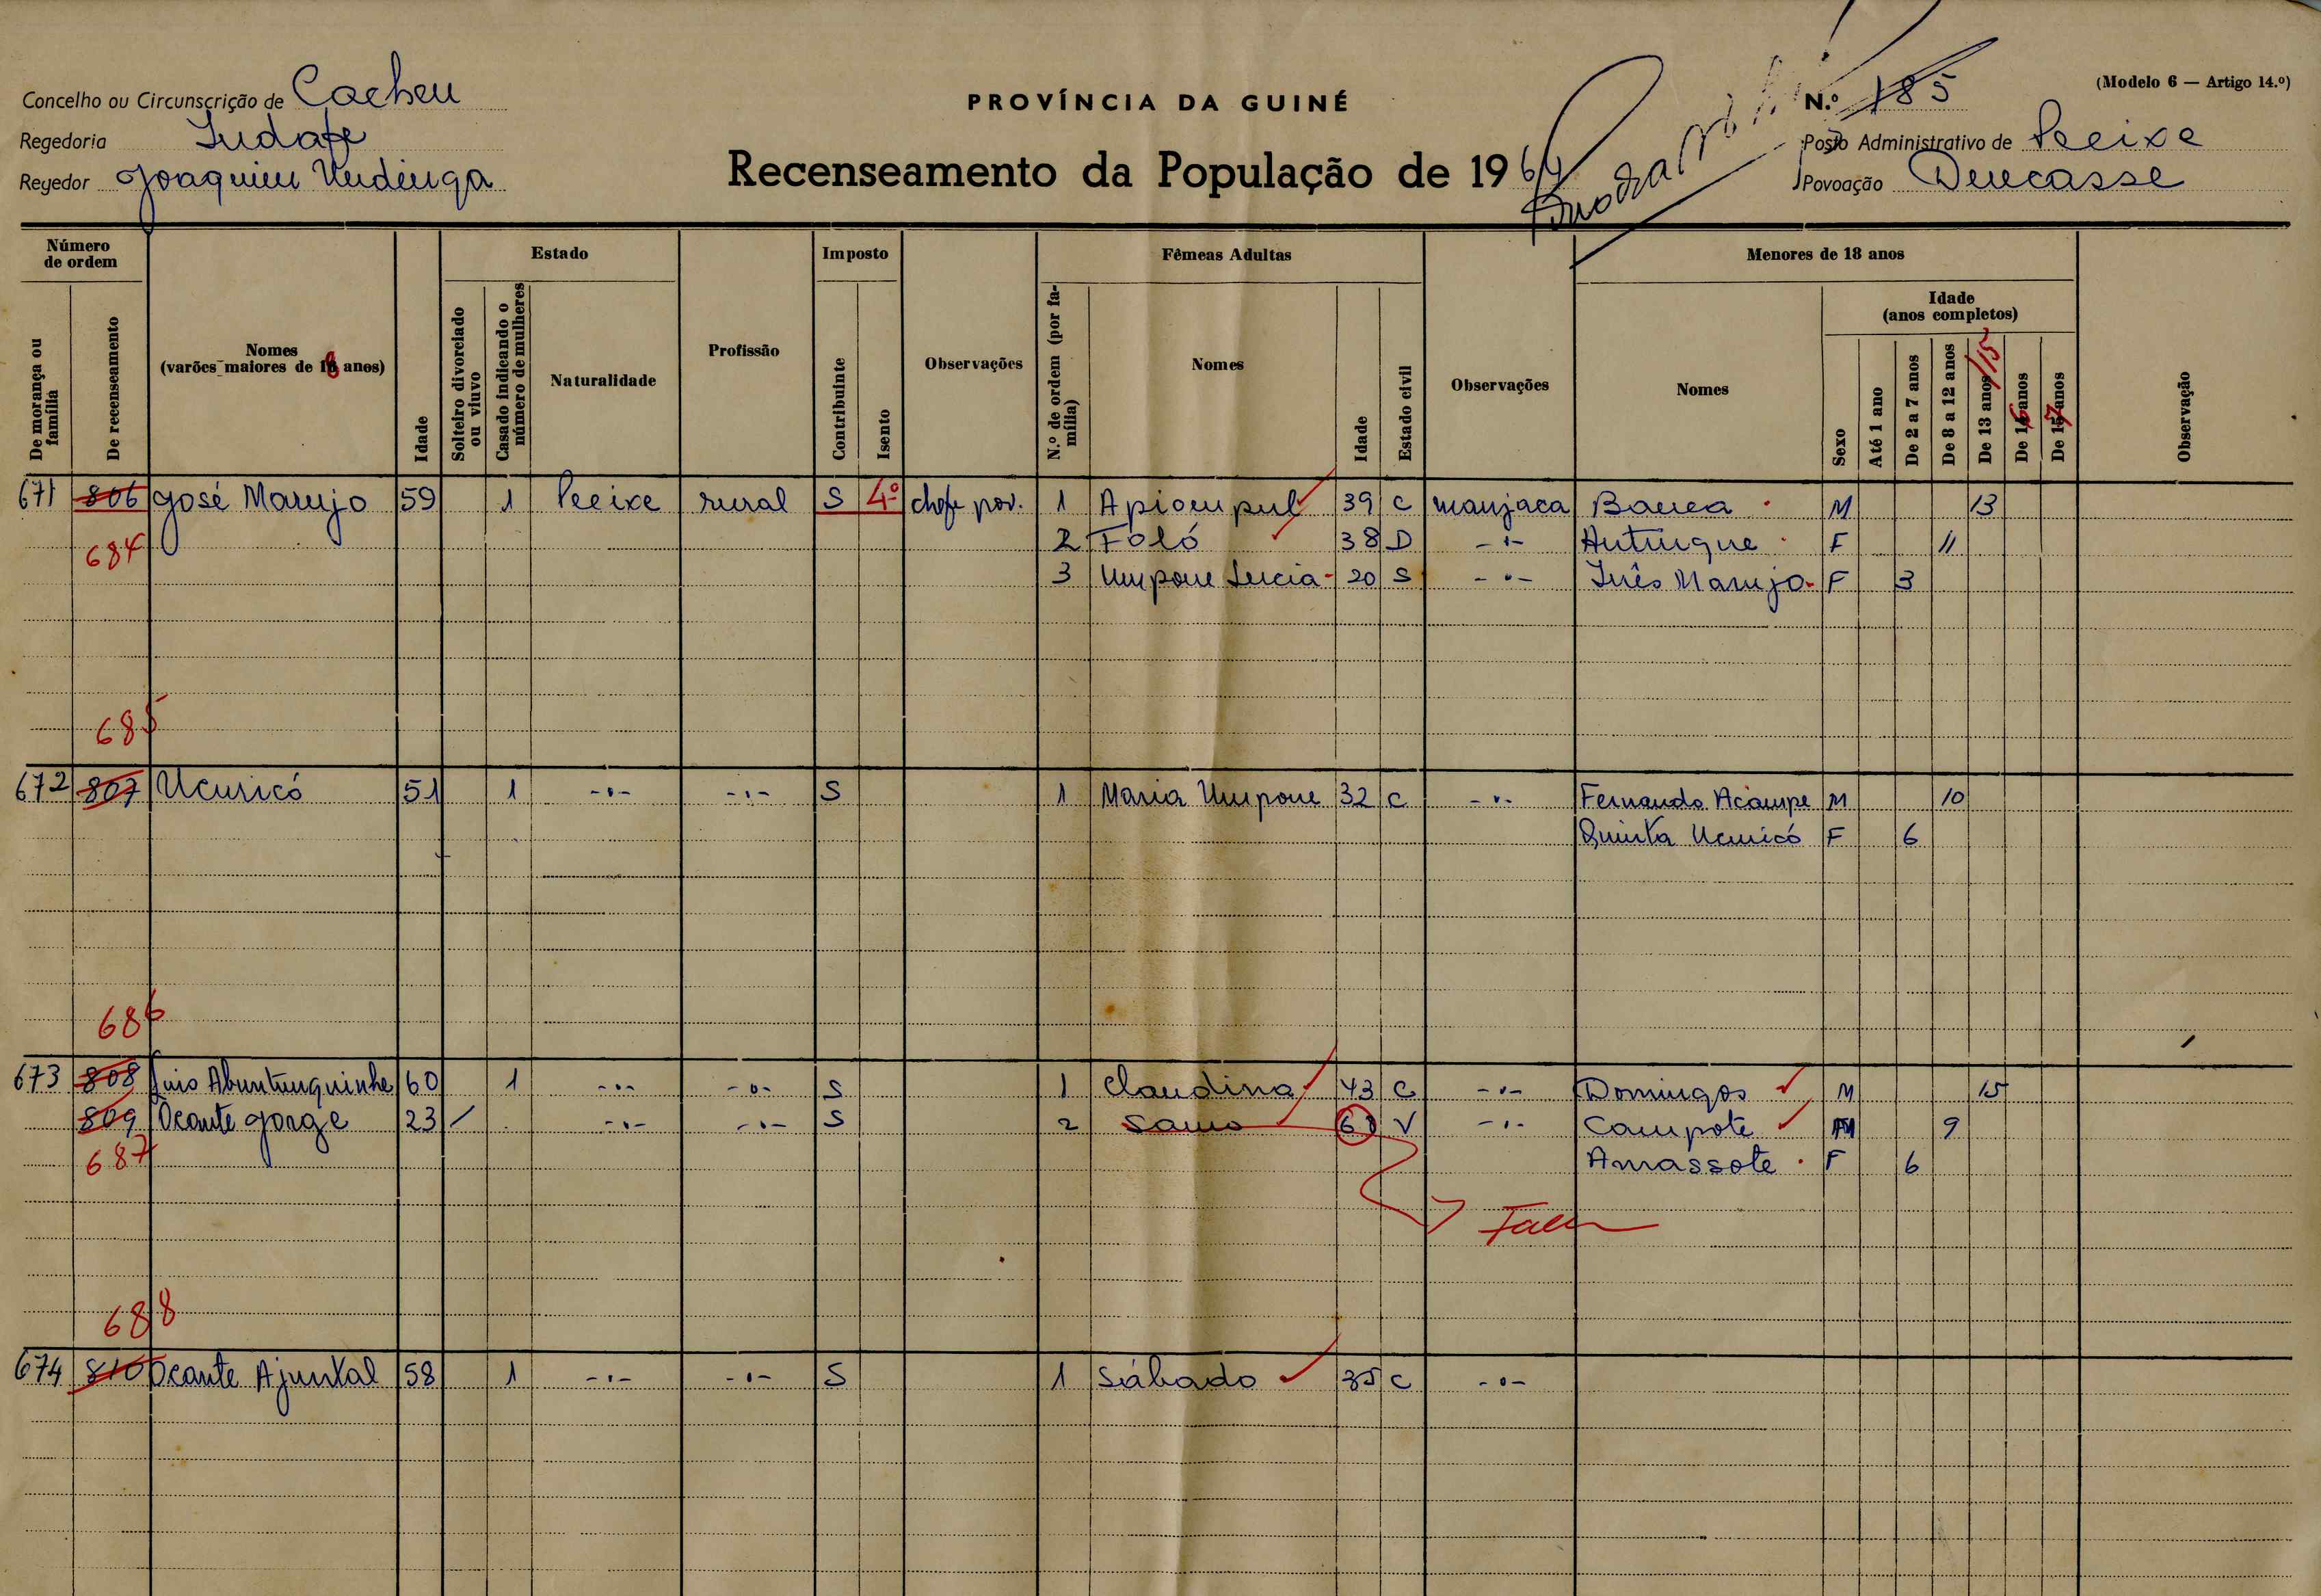 Concelho ou Circunscrição de Cacheu
Regedoria
Regedor Joaquim
PROVÍNCIA DA GUINÉ
Recenseamento da População de 1964
(Modelo 6 — Artigo 14.º)
N.º 185
Posto Administrativo de Pecixe
Povoação
Número de ordem
De morança ou família
De recenseamento
Nomes (varões maiores de 18 anos)
Idade
Estado
Solteiro divorciado ou viuvo
Casado indicando o número de mulheres
Naturalidade
Profissão
Imposto
Contribuinte
Isento
Observações
Fêmeas Adultas
N.º de ordem (por família)
Nomes
Idade
Estado civil
Observações
Menores de 18 anos
Nomes
Idade (anos completos)
Sexo
Até 1 ano
De 2 a 7 anos
De 8 a 12 anos
De 13 anos /15
De 16 anos
De 17 anos
Observação
671 806 José Marujo 59 1 Pecixe rural S 4º chefe pov. 1 39 C manjaca M 13
684 2 Foló 38 D -"- F 11
3 Umpone Lucia 20 S -"- Inês Marujo F 3
685
672 807 Ucuricó 51 1 -"- -"- S 1 Maria Umpone 32 C -"- Fernando Acampe M 10
Quinta Ucuricó F 6
686
673 808 60 1 -"- -"- S 1 Claudina 43 C -"- Domingos M 15
809 Ocante Jorge 23 / -"- -"- S 2 V -"- Campote M 9
687 Amassote F 6
688
674 810 Ocante Ajuntal 58 1 -"- -"- S 1 Sábado 35 C -"-